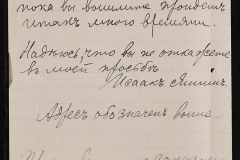 пока вы вышлите пройдет
итак много времени.
Надеюсь, что вы не откажете
въ моей просьбѣ
Исаак
Адрес обозначен выше.